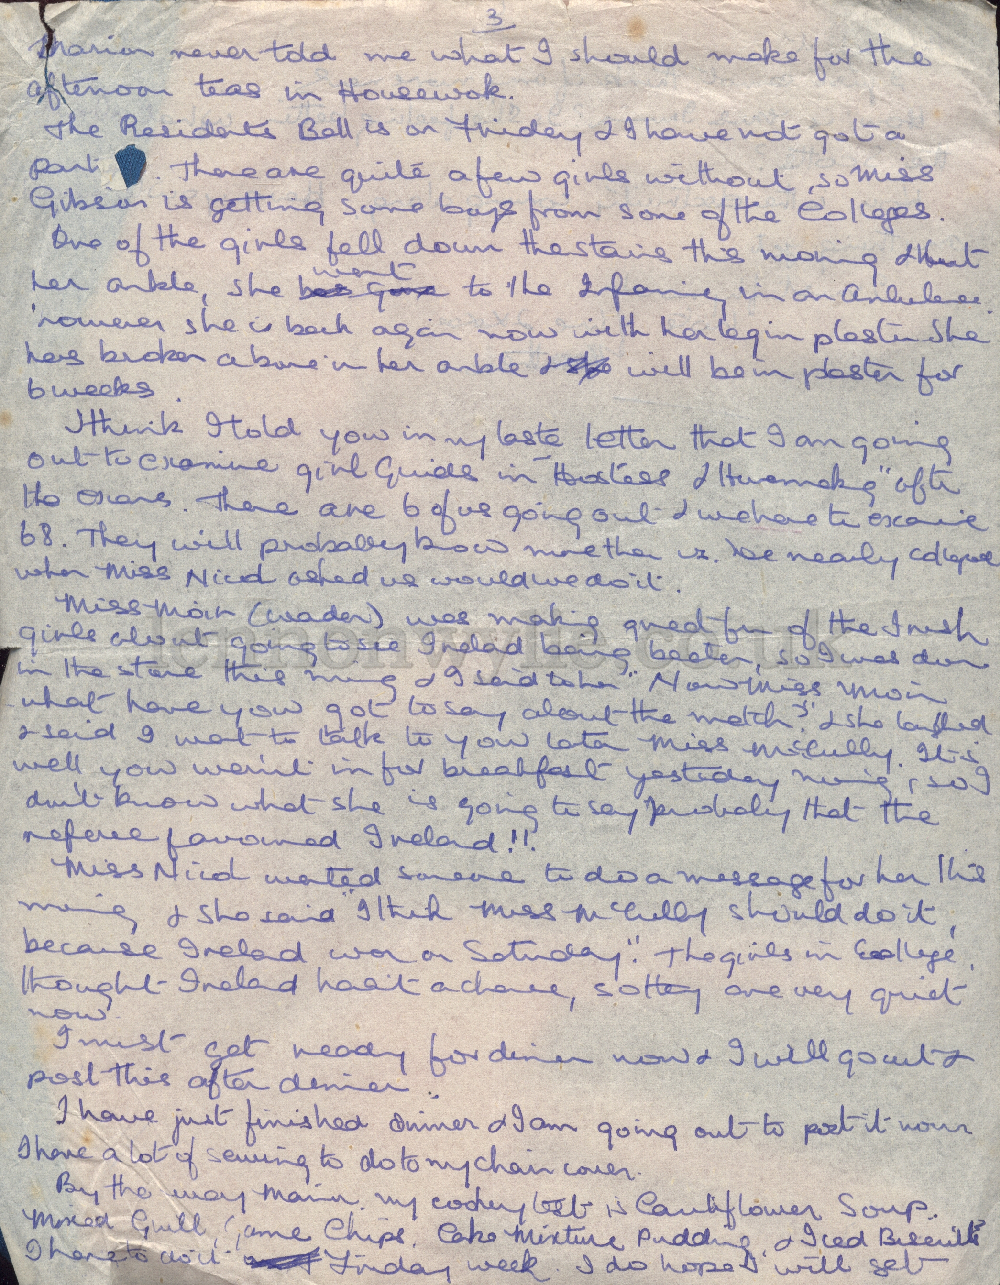 3
Marion never told me what I should make for the
afternoon teas in Housework.
The Residents Ball is on Friday & I have not got a
part . There are quite a few girls without, so Miss
Gibson is getting some boys from some of the Colleges.
One of the girls fell down the stairs this morning & hurt
her ankle, she has gone went to the Infirmary in an Ambulance.
however she is back again now with her leg in plaster. She
has broken a bone in her ankle & she will be in plaster for
6 weeks.
I think I told you in my last letter that I am going
out to examine girl Guides in "Hostess & Homemaking" after
the exams. There are 6 of us going out & we have to examine
68. They will probably know more than us. We nearly collapsed
when Miss Nicol asked us would we do it.
Miss Moir (warden) was making great fun of the Irish
girls about going to see Ireland being beaten, so I was down
in the store this morning & I said to her "Now Miss Moir
what have you got to say about the match?" & she laughed
& said I want to talk to you later Miss McCully. It is
well you weren't in for breakfast yesterday morning, so I
don't know what she is going to say probably that the
referee favoured Ireland!!.
Miss Nicol wanted someone to do a message for her this
morning & she said "I think Miss McCully should do it,
because Ireland won on Saturday". The girls in College,
thought Ireland hadn't a chance, so they are very quiet
now.
I must get ready for dinner now & I will go out &
post this after dinner.
I have just finished dinner & I am going out to post it now
I have a lot of sewing to do to my chair cover.
By the way Marion my cookery test is Cauliflower Soup.
Mixed Grill, Game Chips, Cake Mixture Pudding, & Iced Biscuits
I have to do it Friday week. I do hope I will get
lennonwylie.co.uk